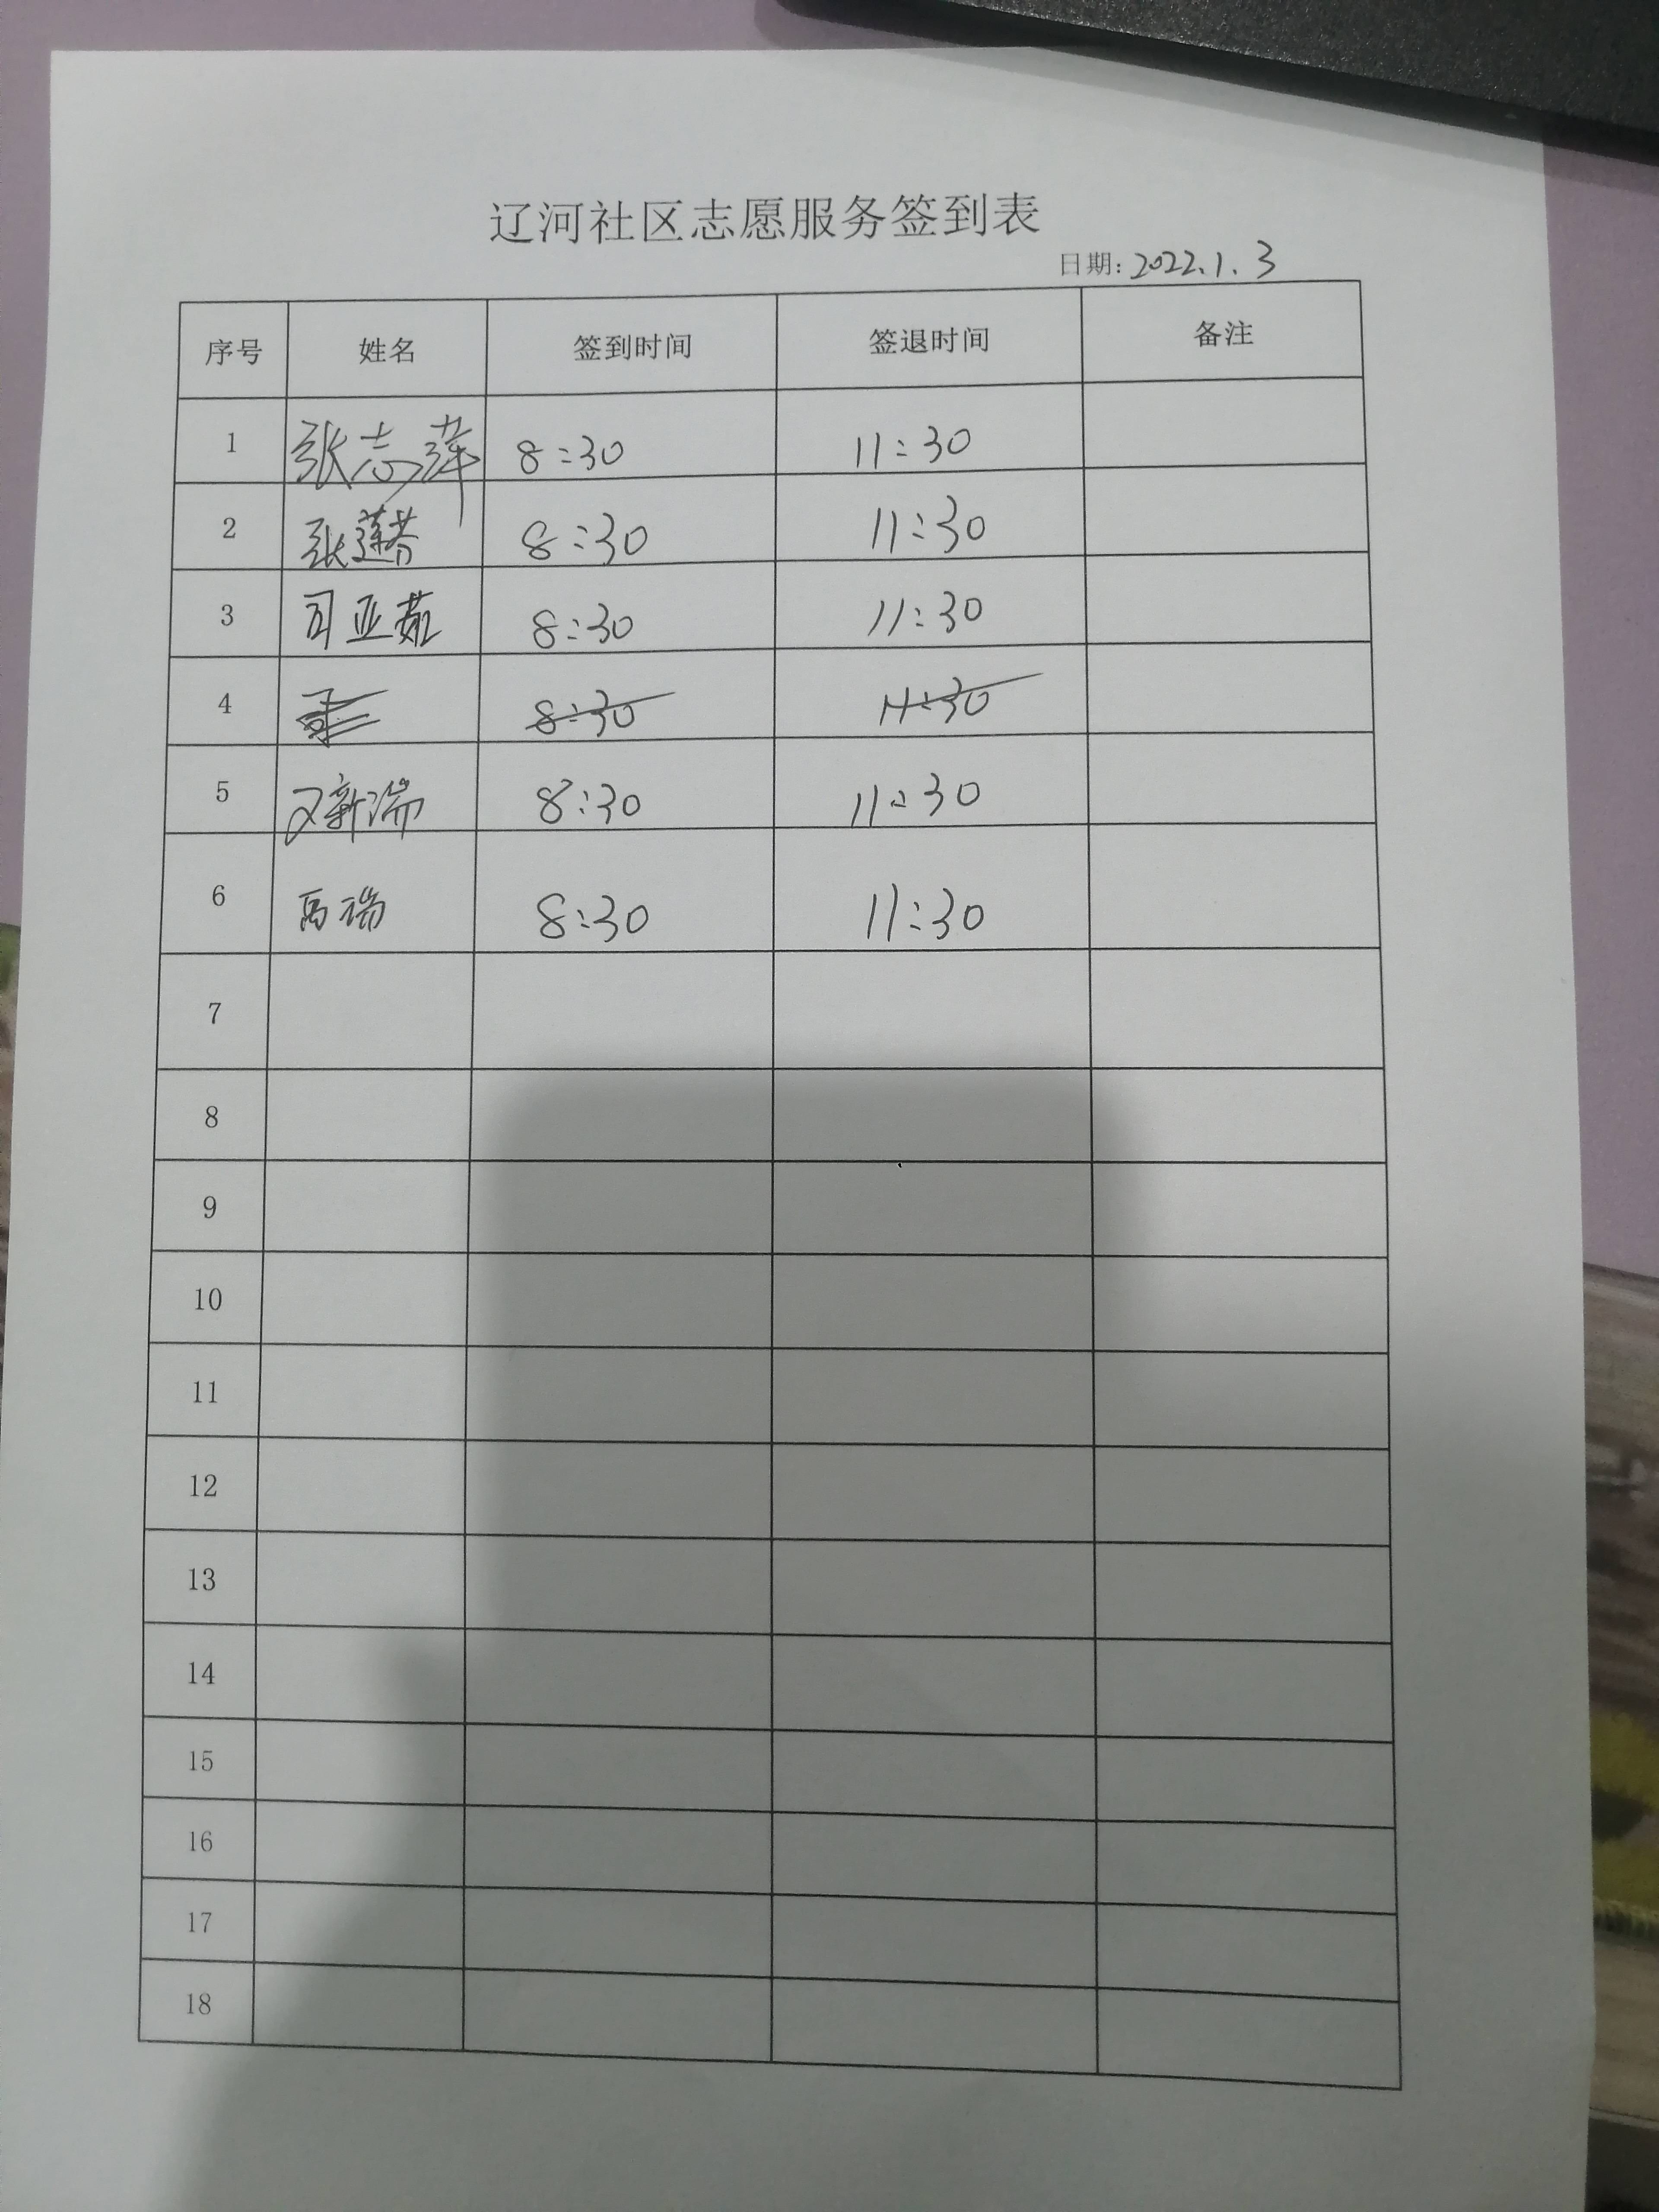 辽河社区志愿服务签到表
日期: 2022.1.3
序号 姓名 签到时间 签退时间 备注
1 张志萍 8:30 11:30
2 张莲芬 8:30 11:30
3 司亚茹 8:30 11:30
4 8:30 11:30
5 8:30 11:30
6 高瑞 8:30 11:30
7
8
9
10
11
12
13
14
15
16
17
18